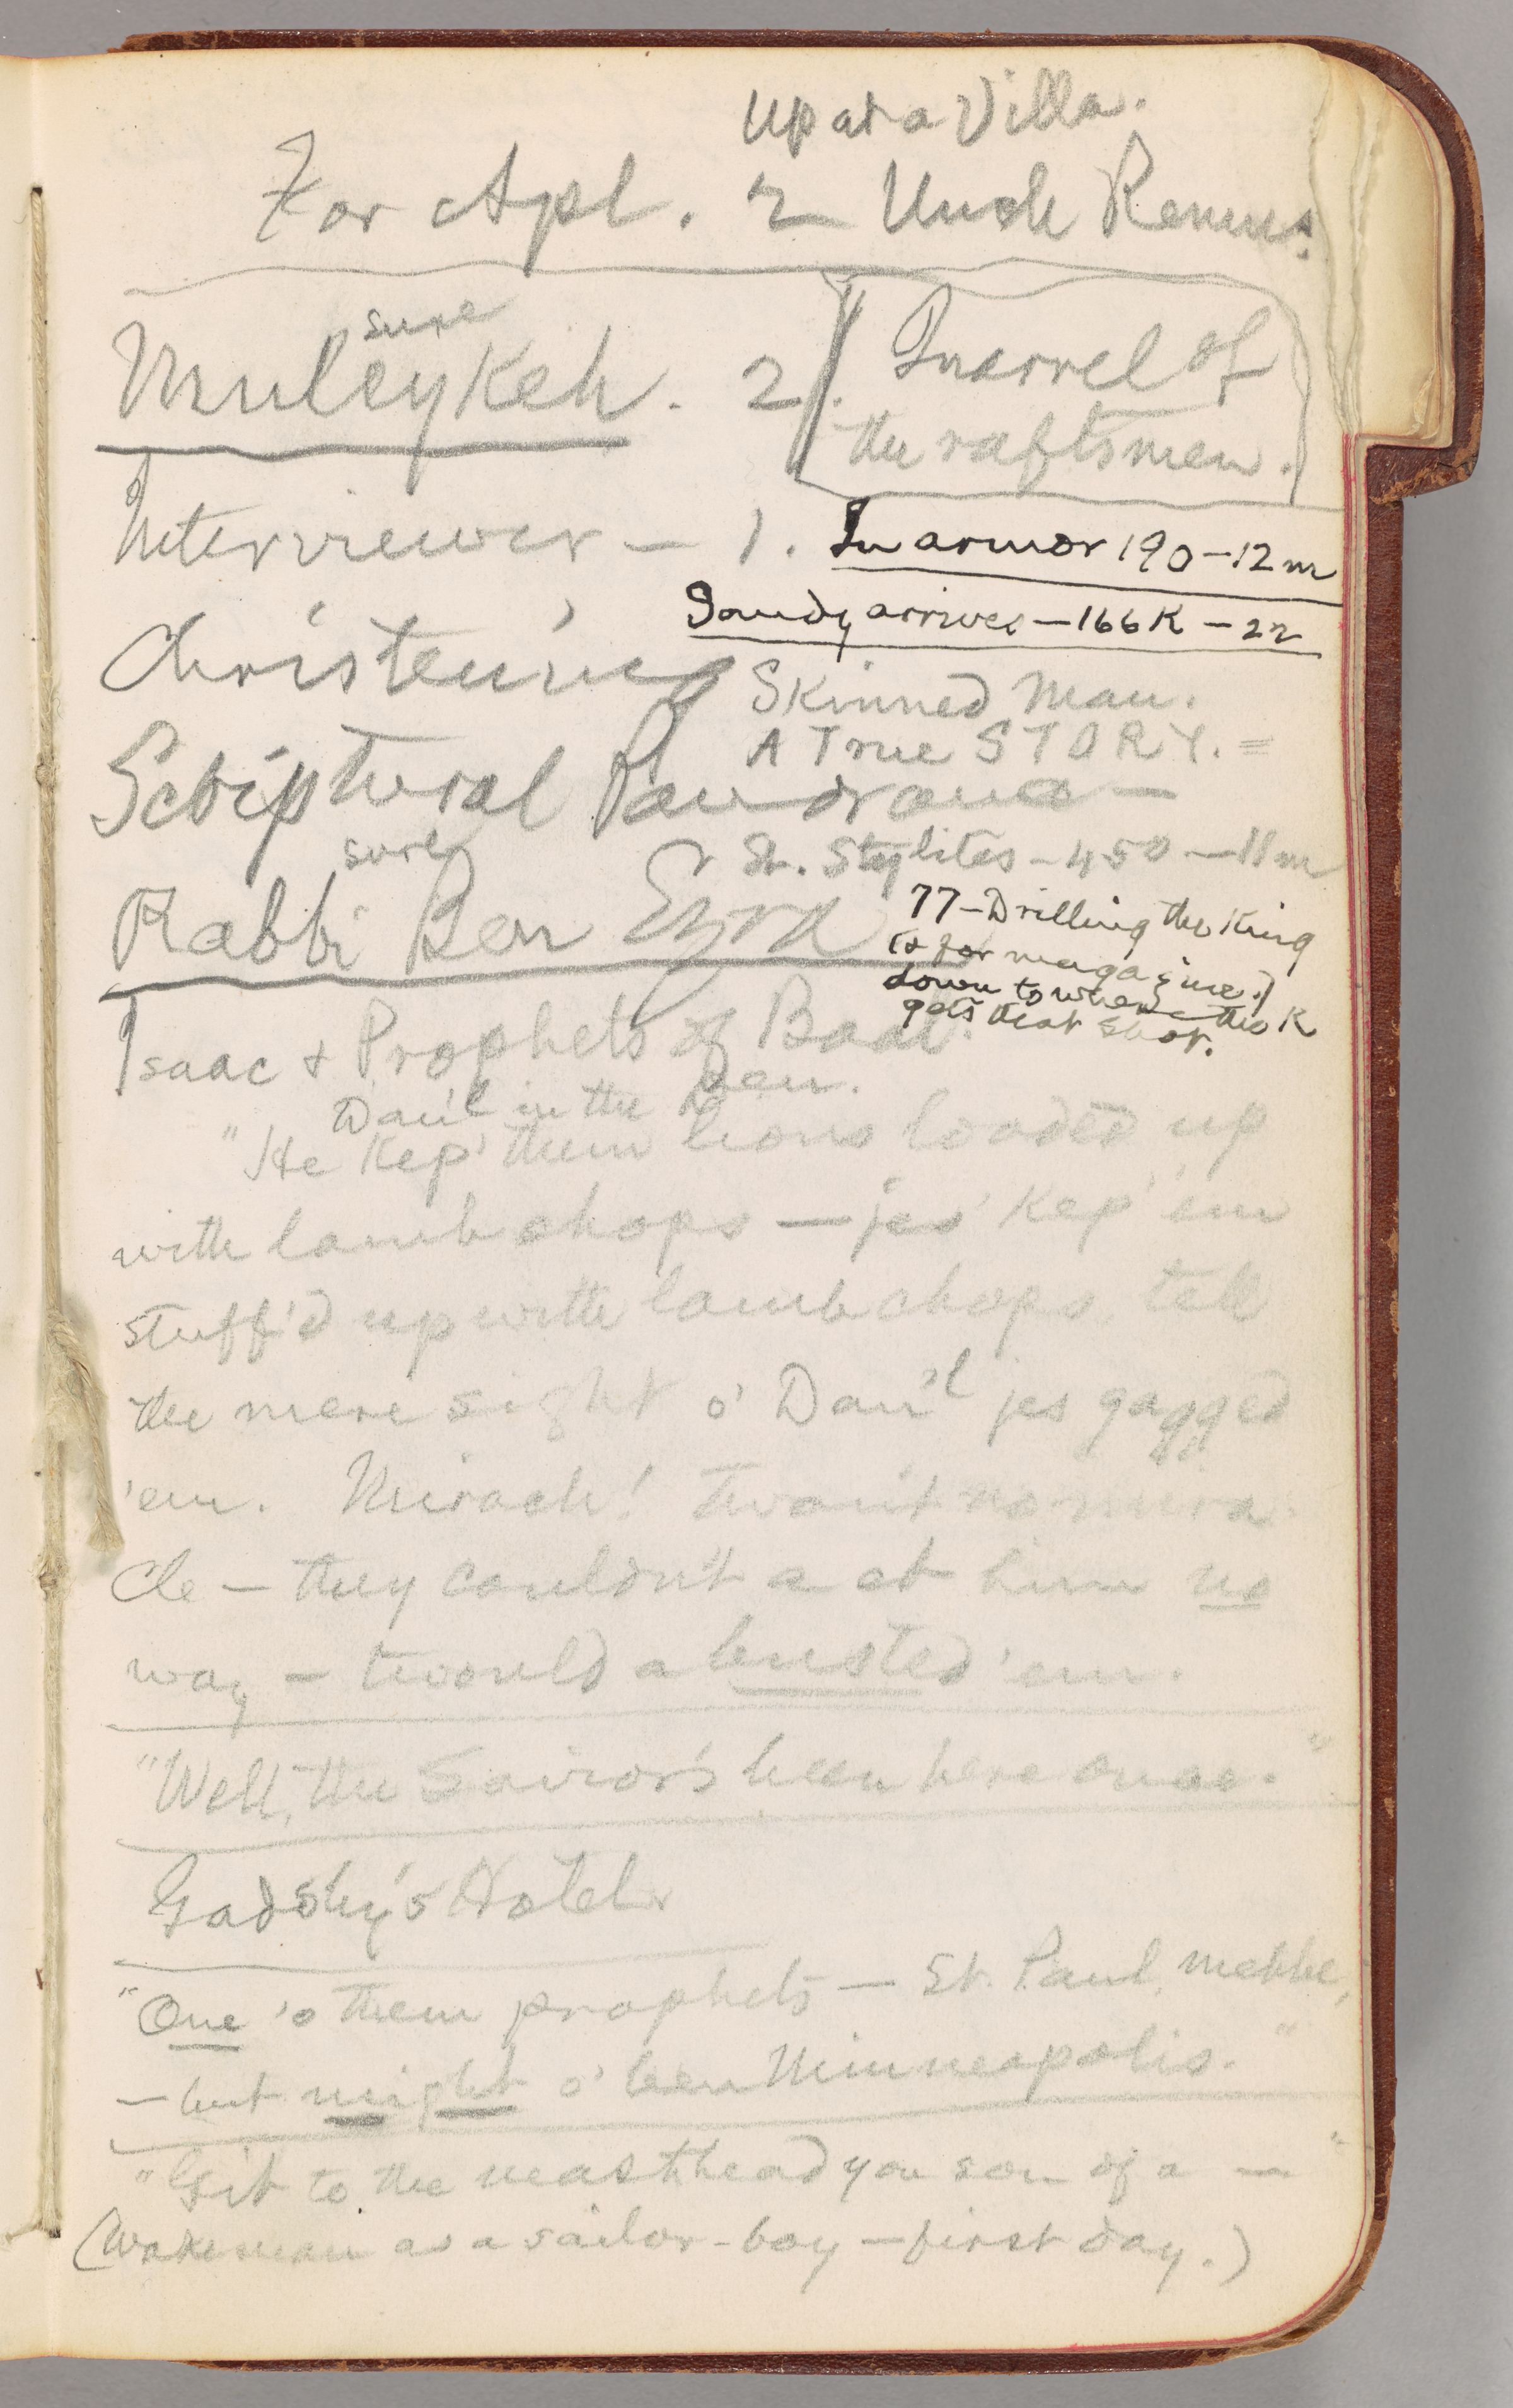 Up at a Villa.
For Apl. 2 Uncle Remus.
sure
Muleykeh. 2.
Quarrel of
the raftsmen.
Interviewer — 1.
In armor 190 — 12 m
Sandy arrives — 166 K — 22
Christening
Skinned Man.
A True STORY. =
Scriptural Panorama —
sure
St. Stylites — 450 — 11 m
Rabbi Ben Ezra
77 — Drilling the King
(& for magazine.)
down to where the K
gets that shot.
Isaac & Prophets of Baal.
Dan'l in the Den.
"He kep' them lions loaded up
with lamb chops — jes' kep' 'em
stuff'd up with lamb chops, tell
the mere sight o' Dan'l jes gagged
'em. Miracle! Twan't no mira-
cle — they couldn't a et him no
way — twould a busted 'em.
"Well, the Savior's been here once."
Gadsby's Hotel.
"One 'o them prophets — St. Paul, mebbe,
— but might o' been Minneapolis."
"Git to the masthead you son of a — "
(Wakeman as a sailor-boy — first day.)